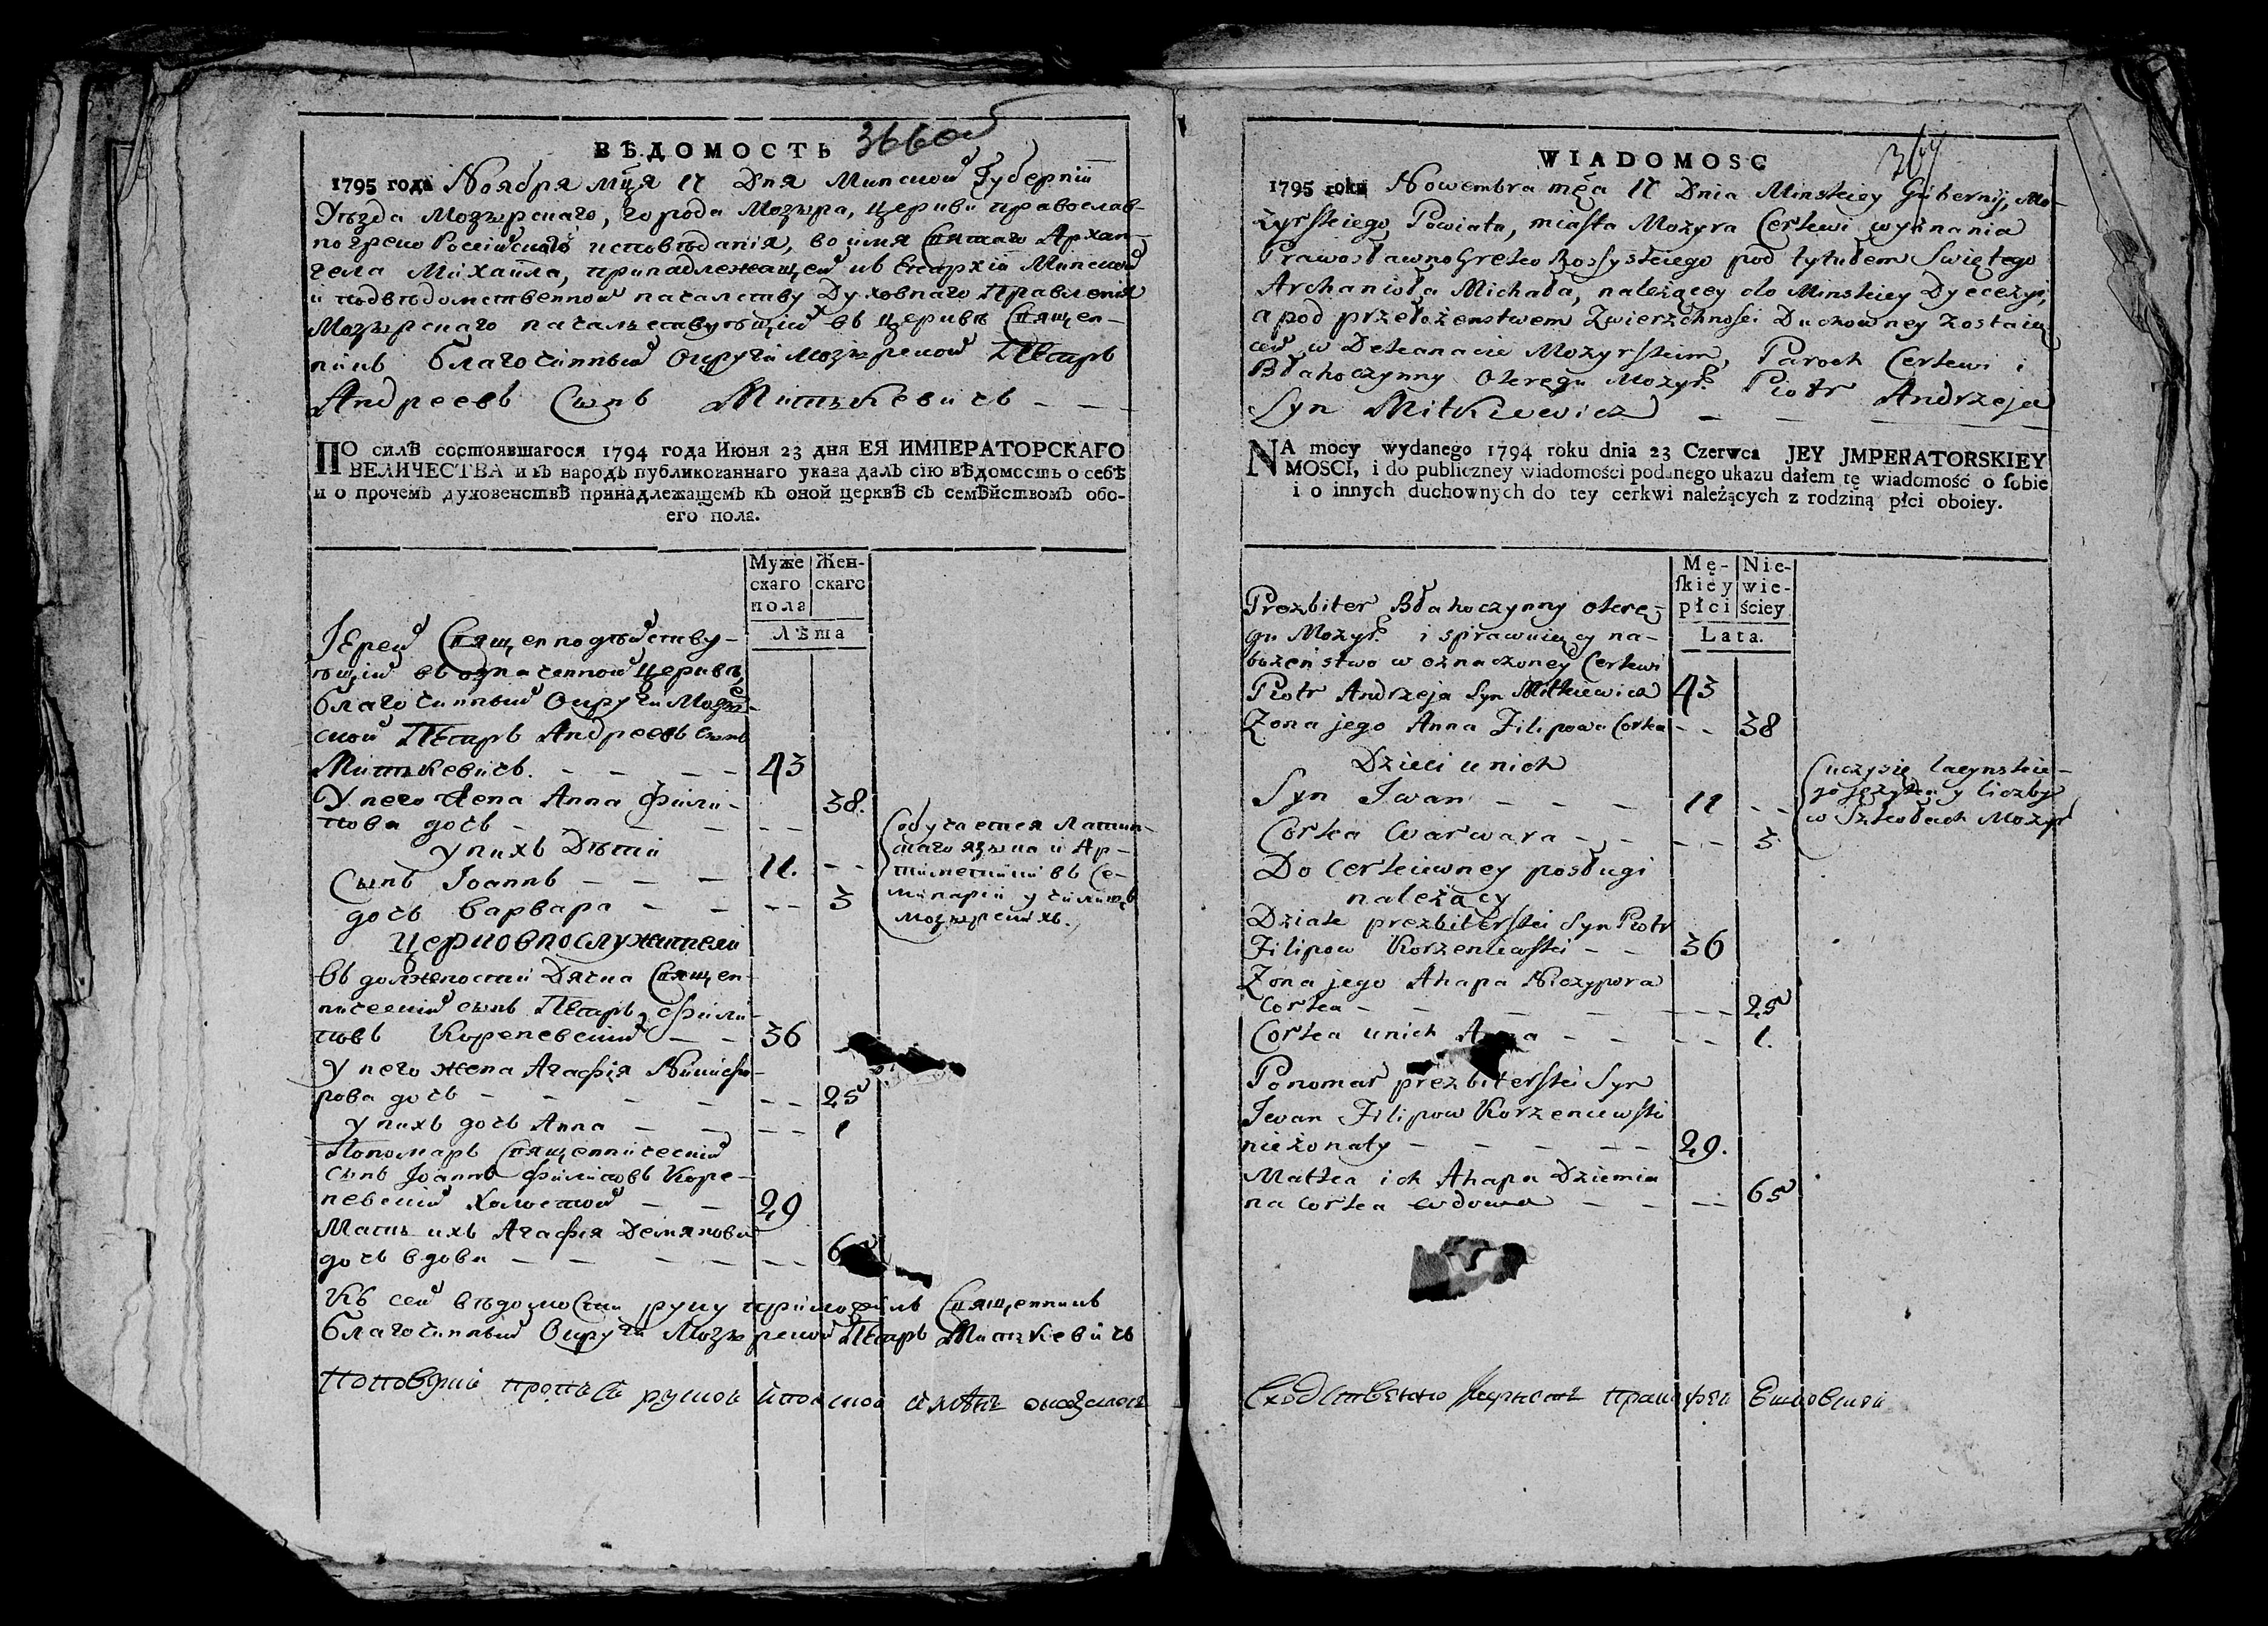 ВѢДОМОСТЬ 366об
1795 года Ноября мця 11 Дня Минской Губерніи
Уѣзда Мозырскаго, города Мозыра, церкви православ-
но греко Россійскаго исповѣданія, во имя Святаго Архан-
гела Михаила, принадлежащей къ Епархіи Минской
и подвѣдомственной началству Духовнаго Правленія
Мозырскаго началствующій въ церквѣ Священ-
никъ благочинный Округи Мозырской Петръ
Андреевъ Сынъ Митькевичъ - - -
ПО силѣ состоявшагося 1794 года Июня 23 дня ЕЯ ИМПЕРАТОРСКАГО
ВЕЛИЧЕСТВА и въ народъ публикованнаго указа далъ сію вѣдомость о себѣ
и о прочемъ духовенствѣ принадлежащемъ къ оной церквѣ съ семѣйствомъ обо-
его пола.
Муже
скаго
пола
Жен-
скаго
Лѣта
Іерей Священнодѣйству-
ющій въ означенной церквѣ,
благочинный Округи Мозыр-
ской Петръ Андреевъ Сынъ
Митькевичъ. - - - - 43
У него жена Анна Фили- 38.
пова дочь - - - - -
У нихъ Дѣти
Сынъ Іоаннъ - - - 11. - -
дочь Варвара - - - - 3
(обучается Латин-
скаго языка и Ар-
тиметики въ Се-
минаріи училищъ
мозырскихъ.
Церковнослужители
Въ должности Дячка Священ-
ническій сынъ Петръ Фили-
повъ Кореневскій - - 36
У него жена Агафія Никифо-
рова дочь - - - - - - 25
у нихъ дочь Анна - - - - 1
Пономарь Священническій
сынъ Іоаннъ Филиповъ Коре-
невскій Холостой - - 29
Мать ихъ Агафія Демянова
дочь вдова - - - - - - 6
Къ сей вѣдомости руку приложилъ Священникъ
благочинный Округи Мозырской Петръ Митькевичъ
WIADOMOSC 367
1795 roku Nowembra męca 11 Dnia Minskiey Gubernij, Mo-
zyrskiego Powiatu, miasta Mozyra Cerkwi wyznania
Prawosławno Greko Rossyskiego pod tytułem Swiętego
Archanioła Michała, należącey do Minskiey Dyecezyi,
a pod przełożenstwem Zwierzchnosci Duchowney zostaią-
cey w Dekanacie Mozyrskim, Paroch Cerkwi i
Błahoczynny Okręgu Mozyr: Piotr Andrzeja
Syn Mitkiewicz - - -
NA mocy wydanego 1794 roku dnia 23 Czerwca JEY JMPERATORSKIEY
MOSCI, i do publiczney wiadomości podanego ukazu dałem tę wiadomość o sobie
i o innych duchownych do tey cerkwi należących z rodziną płci oboiey.
Mę-
skiey
płci
Nie-
wie-
ściey
Lata.
Prezbiter Błahoczynny okrę-
gu Mozyr: i sprawuiący na-
bożeństwo w oznaczoney Cerkwi
Piotr Andrzeja Syn Mitkiewicz 43
Żona jego Anna Filipowa Corka - - 38
Dzieci u nich
Syn Iwan - - - 11 - -
Corka Warwara - - - - 3
(uczysię łacynskie-
go języka y liczby
w Szkołach Mozyr
Do cerkiewney posługi
należący
Dziak prezbiterski Syn Piotr
Filipow Korzeniewski - - 36
Żona jego Ahapa Niczypora
Corka - - - - - - - 25
Corka u nich A a - - - - 1.
Ponomar prezbiterski Syn
Iwan Filipow Korzeniewski
nieżonaty - - - - - 29.
Matka ich Ahapa Dziemia
na corka wdowa - - - - 65